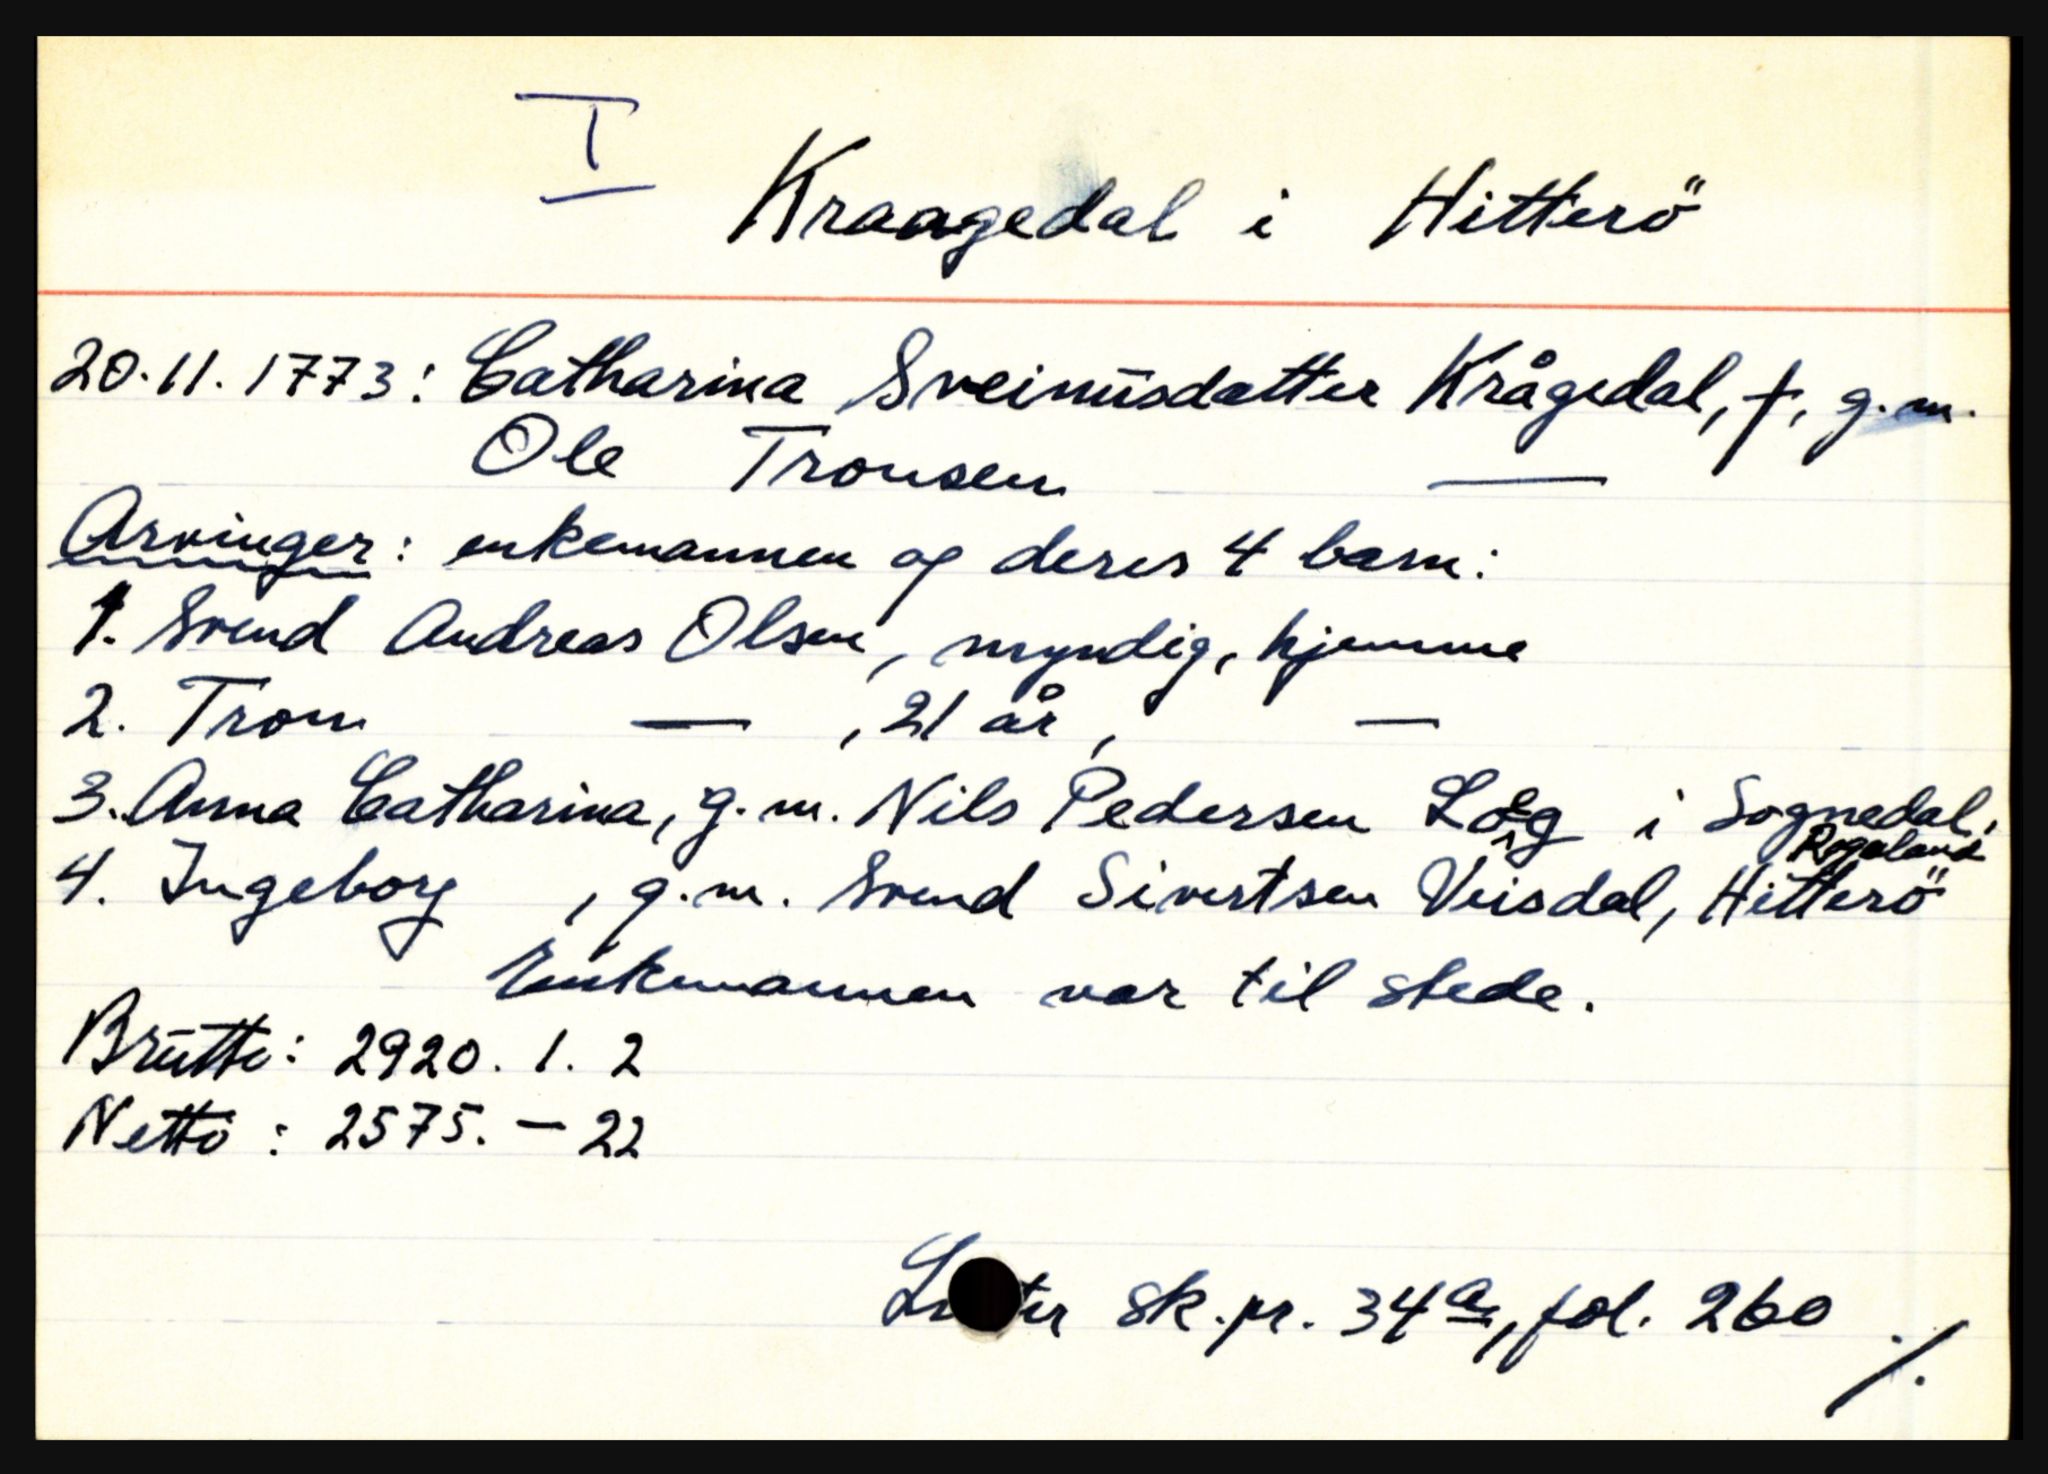 I
Kraagedal i Hitterö
20.11.1773: Catharina Sveinusdatter Krågedal, †, g.m.
Ole Tronsen —
Arvinger: enkemannen og deres 4 barn:
1. Svend Andreas Olsen, myndig, hjemme
2. Tron — , 21 år, —
3. Anna Catharina, g.m. Nils Pedersen i Sognedal,
Rogaland
4. Ingeborg , g.m. Svend Sivertsen Veisdal, Hitterö
Enkemannen var til stede.
Brutto: 2920. 1. 2
Netto: 2575. — 22
sk.pr. 34a, fol. 260
./.